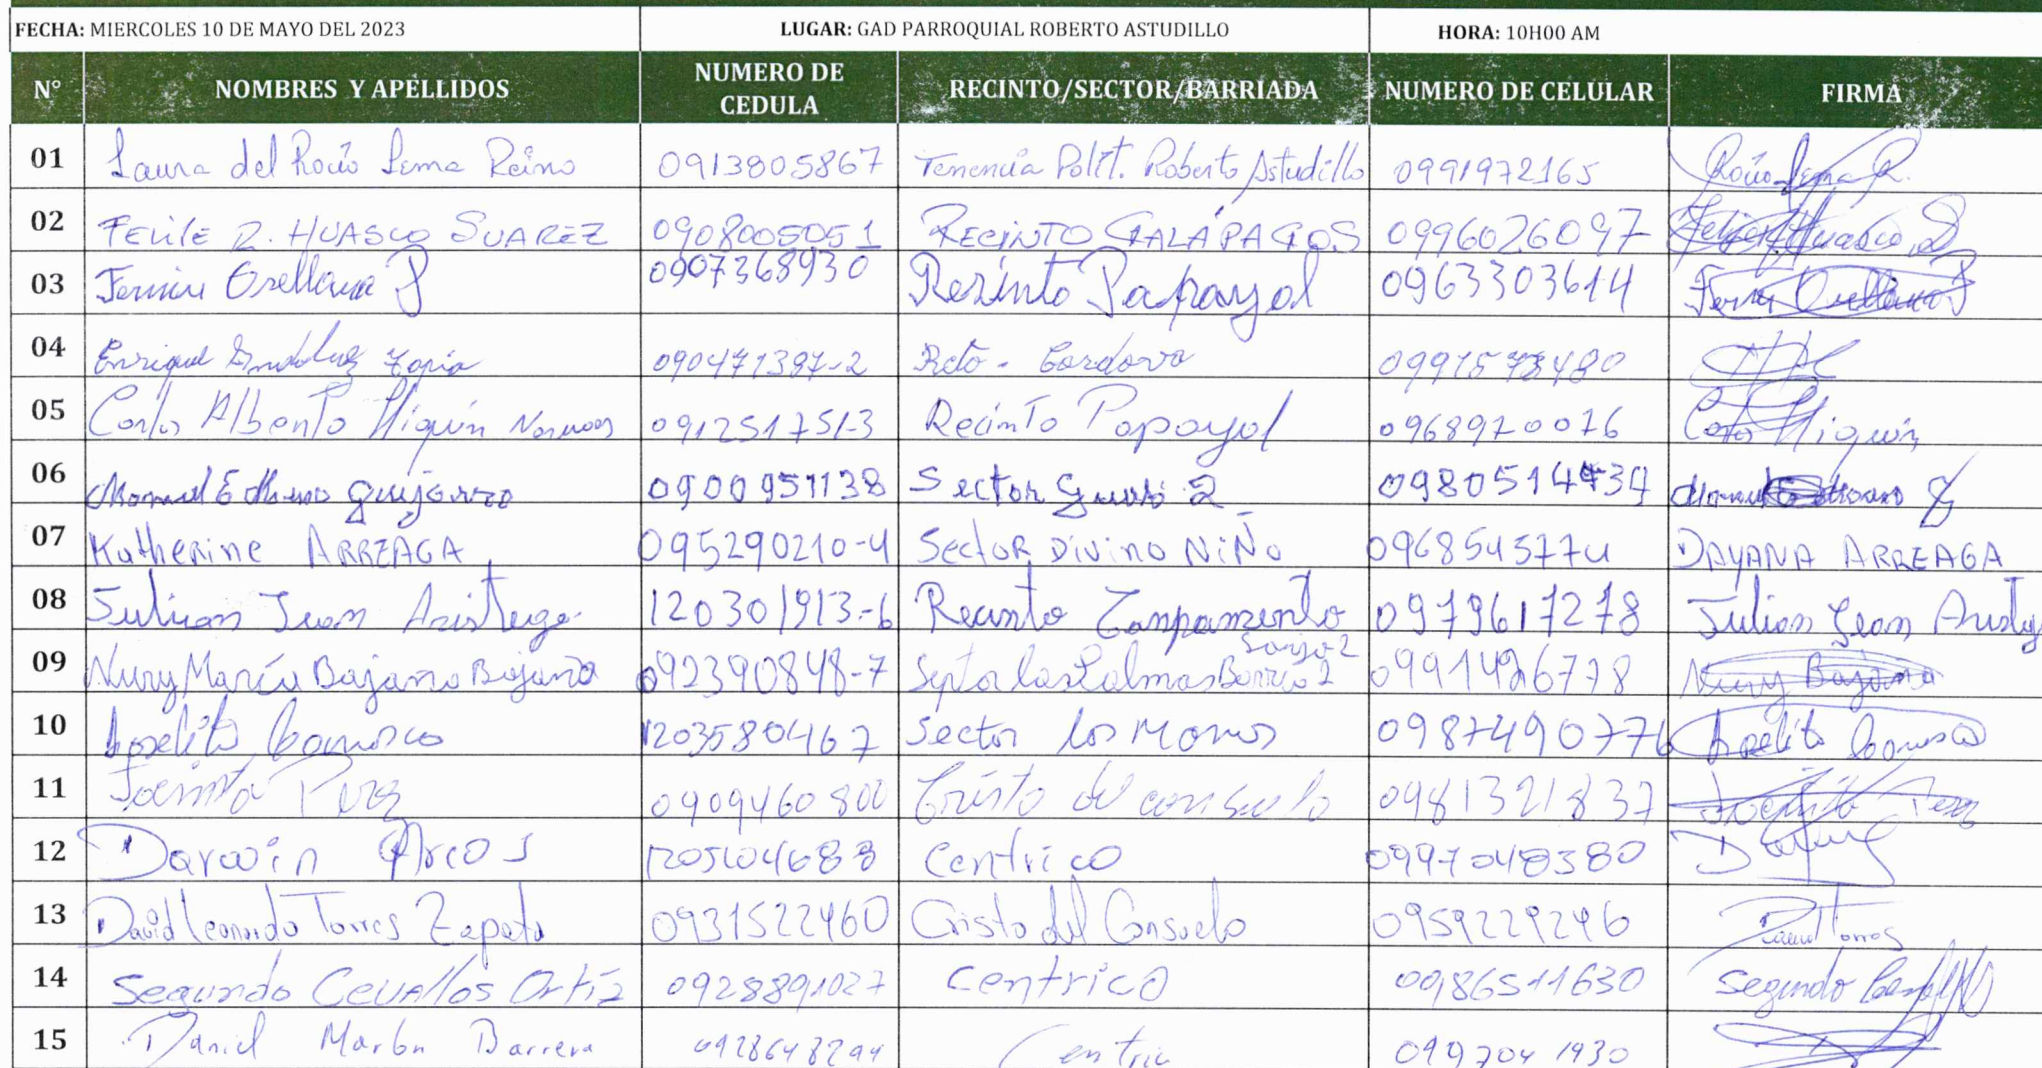 FECHA: MIERCOLES 10 DE MAYO DEL 2023 LUGAR: GAD PARROQUIAL ROBERTO ASTUDILLO HORA: 10H00 AM
N° NOMBRES Y APELLIDOS NUMERO DE CEDULA RECINTO/SECTOR/BARRIADA NUMERO DE CELULAR FIRMA
01 Laura del Rocío Lema Reino 0913805867 Tenencia Polít. Roberto Astudillo 0991972165 Rocío Lema R.
02 FELILE R. HUASCO SUAREZ 0908005051 RECINTO GALÁPAGOS 0996026097 Huasco S
03 Fermin Orellana P 0907368930 Resinto Papayol 0963303614 Orellana P
04 Enrique Tapia Rcto - Cordova
05 Carlos Alberto Hiquin 091251751-3 Recinto Papayol 0968970076 Hiquin
06 Manuel Quijarro 0900951138 Sector 2
07 Katherine ARREAGA 095290210-4 Sector DIVINO NIÑO 0968545774 DAYANA ARREAGA
08 Julian Jean Aristega 120301913-6 Recinto Campamento 0979617278 Julian Jean
09 Nury María Bajaña Bajaña 092390848-7 Septor las Palmas Barrio 2 Nury Bajaña
10 Carrasco 1203580467 Sector los Monos 0987490776
11 Jacinto Perez 0909460800 Cristo del consuelo 0981321837 Jacinto Perez
12 Darwin Arcos Centrico 0997048380
13 David Leonardo Torres Zapata 0931522460 Cristo del Consuelo 0959229246 David Torres
14 Segundo Cevallos Ortiz 0928891027 Centrico 0986511630 Segundo
15 Daniel Barrera 0928648294 Centric 0997041930